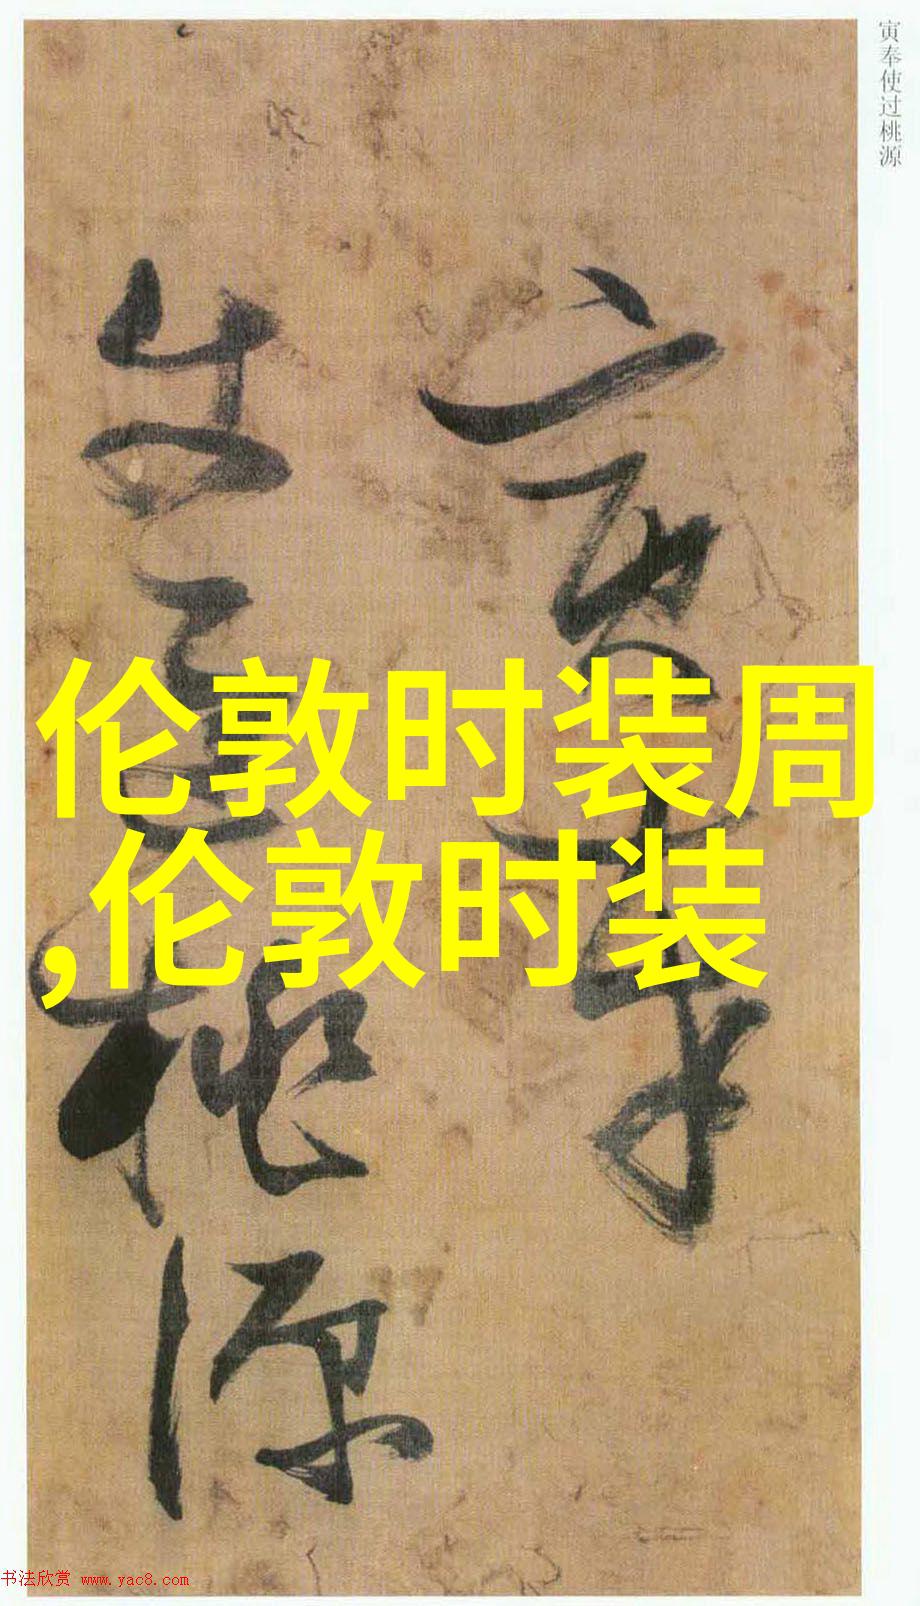 寅奉使过桃源
寅奉
使过桃源
伦敦时装周
,伦敦时装
书法欣赏 www.yac8.com